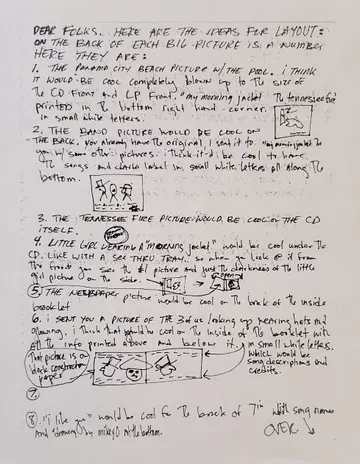 DEAR FOLKS. HERE ARE THE IDEAS FOR LAYOUT:
ON THE BACK OF EACH BIG PICTURE IS A NUMBER
HERE THEY ARE:
1. THE PANAMA CITY BEACH PICTURE W/ THE POOL. i think
IT WOULD BE COOL completely blown up to the size of
the CD Front and LP Front. "my morning jacket The tennessee fire
printed in the bottom right hand corner.
in small white letters.
2. THE BAND PICTURE WOULD BE COOL ON
THE BACK. you already have the original, i sent it to
you w/ some other pictures. i think it'd be cool to have
the songs and label in small white letters all along the
bottom.
3. THE TENNESSEE FIRE PICTURE WOULD BE COOL ON THE CD
ITSELF.
4. LITTLE GIRL WEARING A "morning jacket" would be cool under the
CD. LIKE WITH A SEE THRU TRAY. so when you look @ it from
the front you see the #1 picture and just the darkness of the little
girl picture on the side.
5. THE NEWSPAPER picture would be cool on the back of the inside
booklet
6. i SENT YOU A PICTURE OF THE 3 of us/ wearing hats and
glowing. i think that would be cool on the inside of the booklet with
all the info printed above and below it, in small white letters.
That picture is on
black construction
paper
which would be
song descriptions and
credits.
7.
8. "i like you" would be cool for the back of 7in with song names
and drawing by mikey at the bottom.
OVER